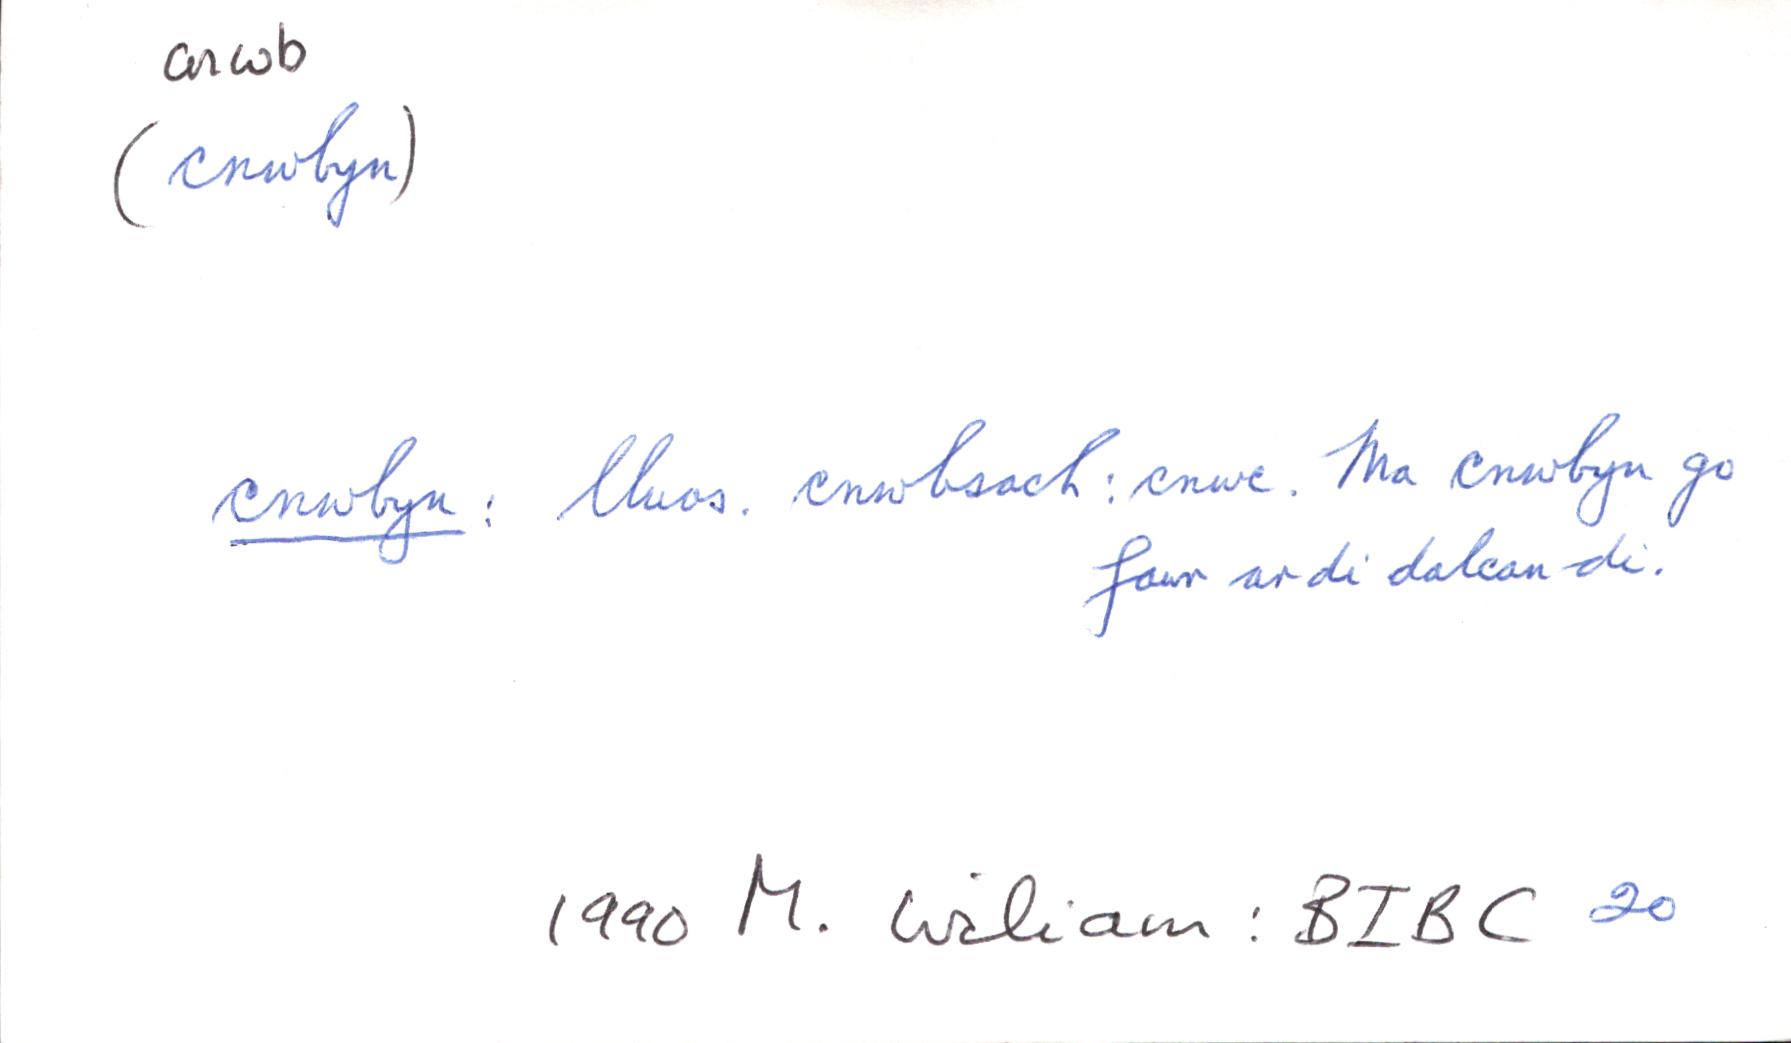 cnwb
(cnwbyn)
cnwbyn: lluos. cnwbsach: cnwc. Ma cnwbyn go
fawr ar di dalcan di.
1990 M. Wiliam: BIBC 20